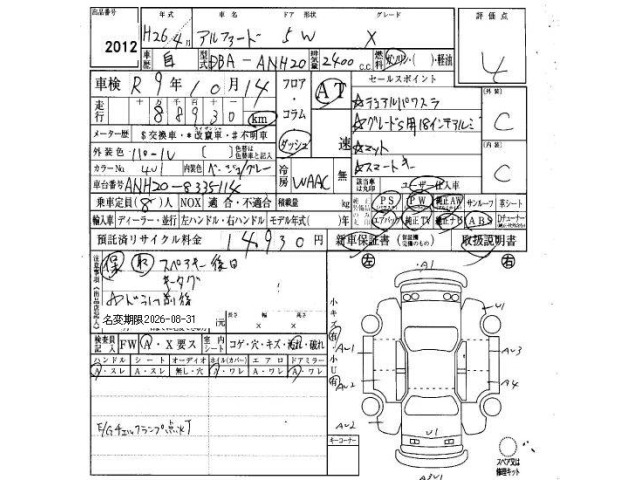 出品番号 年式 車名 ドア 形状 グレード 評価点
2012 H26年4月 アルファード 5W X 4
車歴 自 型式 DBA-ANH20 排気量 2400 c.c. 燃料 ガソリン・軽油
車検 R9年10月14 フロア・コラム・ダッシュ AT 速 セールスポイント
走行 十 万 千 百 十 一 88930 km ☆デュアルパワスラ [外装] C
メーター歴 $交換車・*改竄車・#不明車 ☆グレードS用18インチアルミ
外装色 パール ( ) 色替は色替前色を記入 ☆マット [内装] C
カラーNo. 内装色 ベージュ/グレー 冷房 WAAC 無 ☆スマートキー
車台番号 ANH20-8335114 該当車は丸印 ユーザー仕入車
乗車定員(8)人 NOX 適合・不適合 積載量 kg PS PW 純正AW サンルーフ 革シート
輸入車 ディーラー・並行 左ハンドル・右ハンドル モデル年式( )年 エアバッグ 純正TV 純正ナビ ABS
預託済リサイクル料金 14,930円 新車保証書 取扱説明書
保 取 スペアキー後日
キータグ
☆ドラレコ前後
名変期限2026-08-31
長さ 幅 高さ
検査員記入 FW A・X要ス 室内シート コゲ・穴・キズ・汚れ・破れ
ハンドル シート オーディオ ホイル(カバー) エアロ ドアミラー
A・スレ A・スレ 無し・穴 A・ワレ A・ワレ A・ワレ
E/Gチェックランプ点灯
小キズ 有 小U 有
キーコーナー
左 右
A1
U1
AU1 AU3
AU2 A4
AU2 U1
スペア又は修理キット